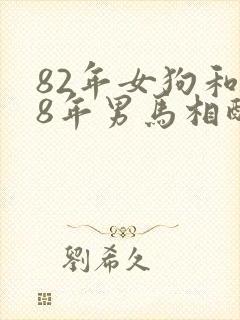 82年女狗和
8年男馬相配
劉希久